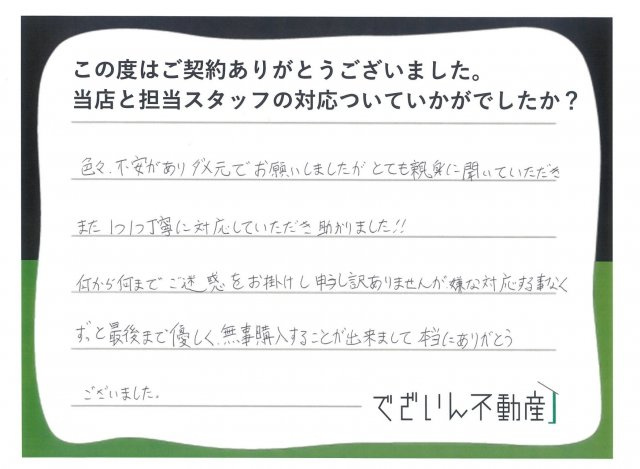 この度はご契約ありがとうございました。
当店と担当スタッフの対応ついていかがでしたか？
色々、不安がありダメ元でお願いしましたがとても親身に聞いていただき
また1つ1つ丁寧に対応していただき助かりました!!
何から何までご迷惑をお掛けし申し訳ありませんが嫌な対応する事なく
ずっと最後まで優しく、無事購入することが出来まして本当にありがとう
ございました。
でざいん不動産